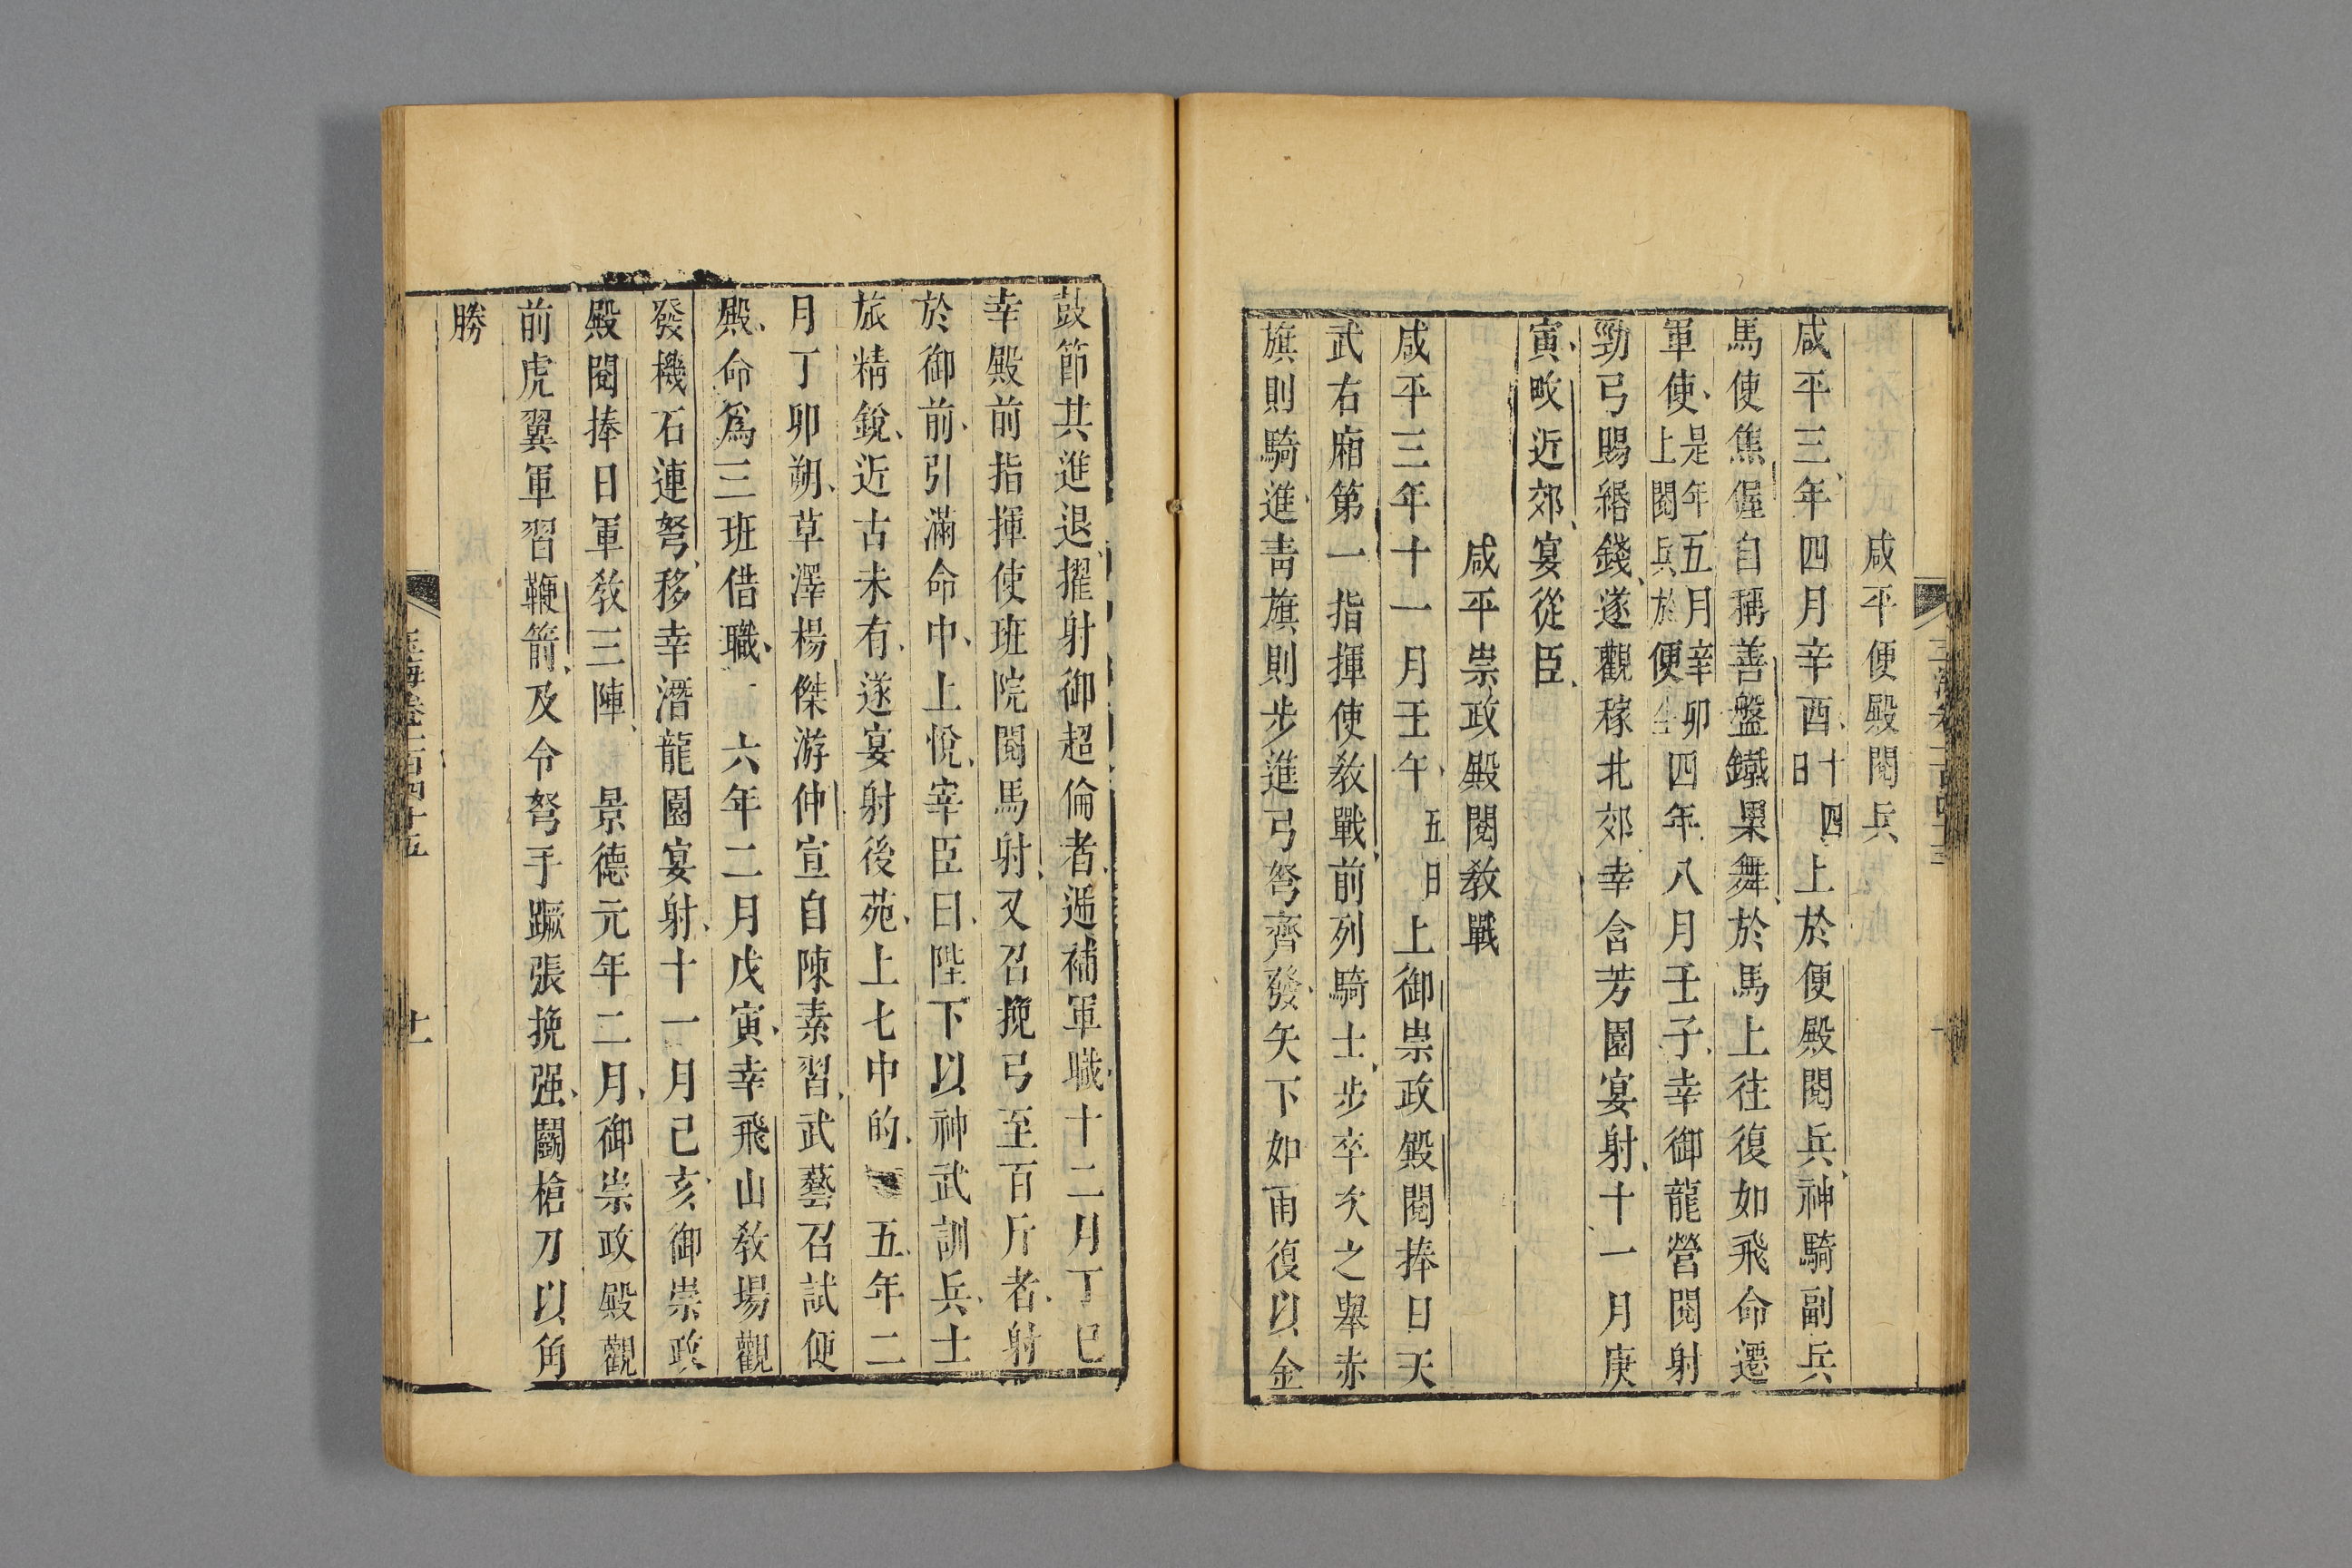 咸平便殿閱兵
咸平三年四月辛酉十四日上於便殿閱兵神騎副兵
馬使焦偓自稱善盤鐵槊舞於馬上往復如飛命遷
軍使是年五月辛卯上閱兵於便四年八月壬子幸御龍營閱射
勁弓賜緡錢遂觀稼北郊幸含芳園宴射十一月庚
寅畋近郊宴從臣
咸平崇政殿閱教戰
咸平三年十一月壬午五日上御崇政殿閱捧日天
武右廂第一指揮使教戰前列騎士步卒次之舉赤
旗則騎進靑旗則步進弓弩齊發矢下如雨復以金
鼓節共進退擢射御超倫者遞補軍職十二月丁巳
幸殿前指揮使班院閱馬射又召挽弓至百斤者射
於御前引滿命中上悅宰臣曰陛下以神武訓兵士
旅精銳近古未有遂宴射後苑上七中的五年二
月丁卯朔草澤楊傑游仲宣自陳素習武藝召試便
殿命爲三班借職六年二月戊寅幸飛山教場觀
發機石連弩移幸潛龍園宴射十一月己亥御崇政
殿閱捧日軍教三陣景德元年二月御崇政殿觀
前虎翼軍習鞭箭及令弩手蹶張挽强鬭槍刀以角
勝
玉海卷一百四十五
十一